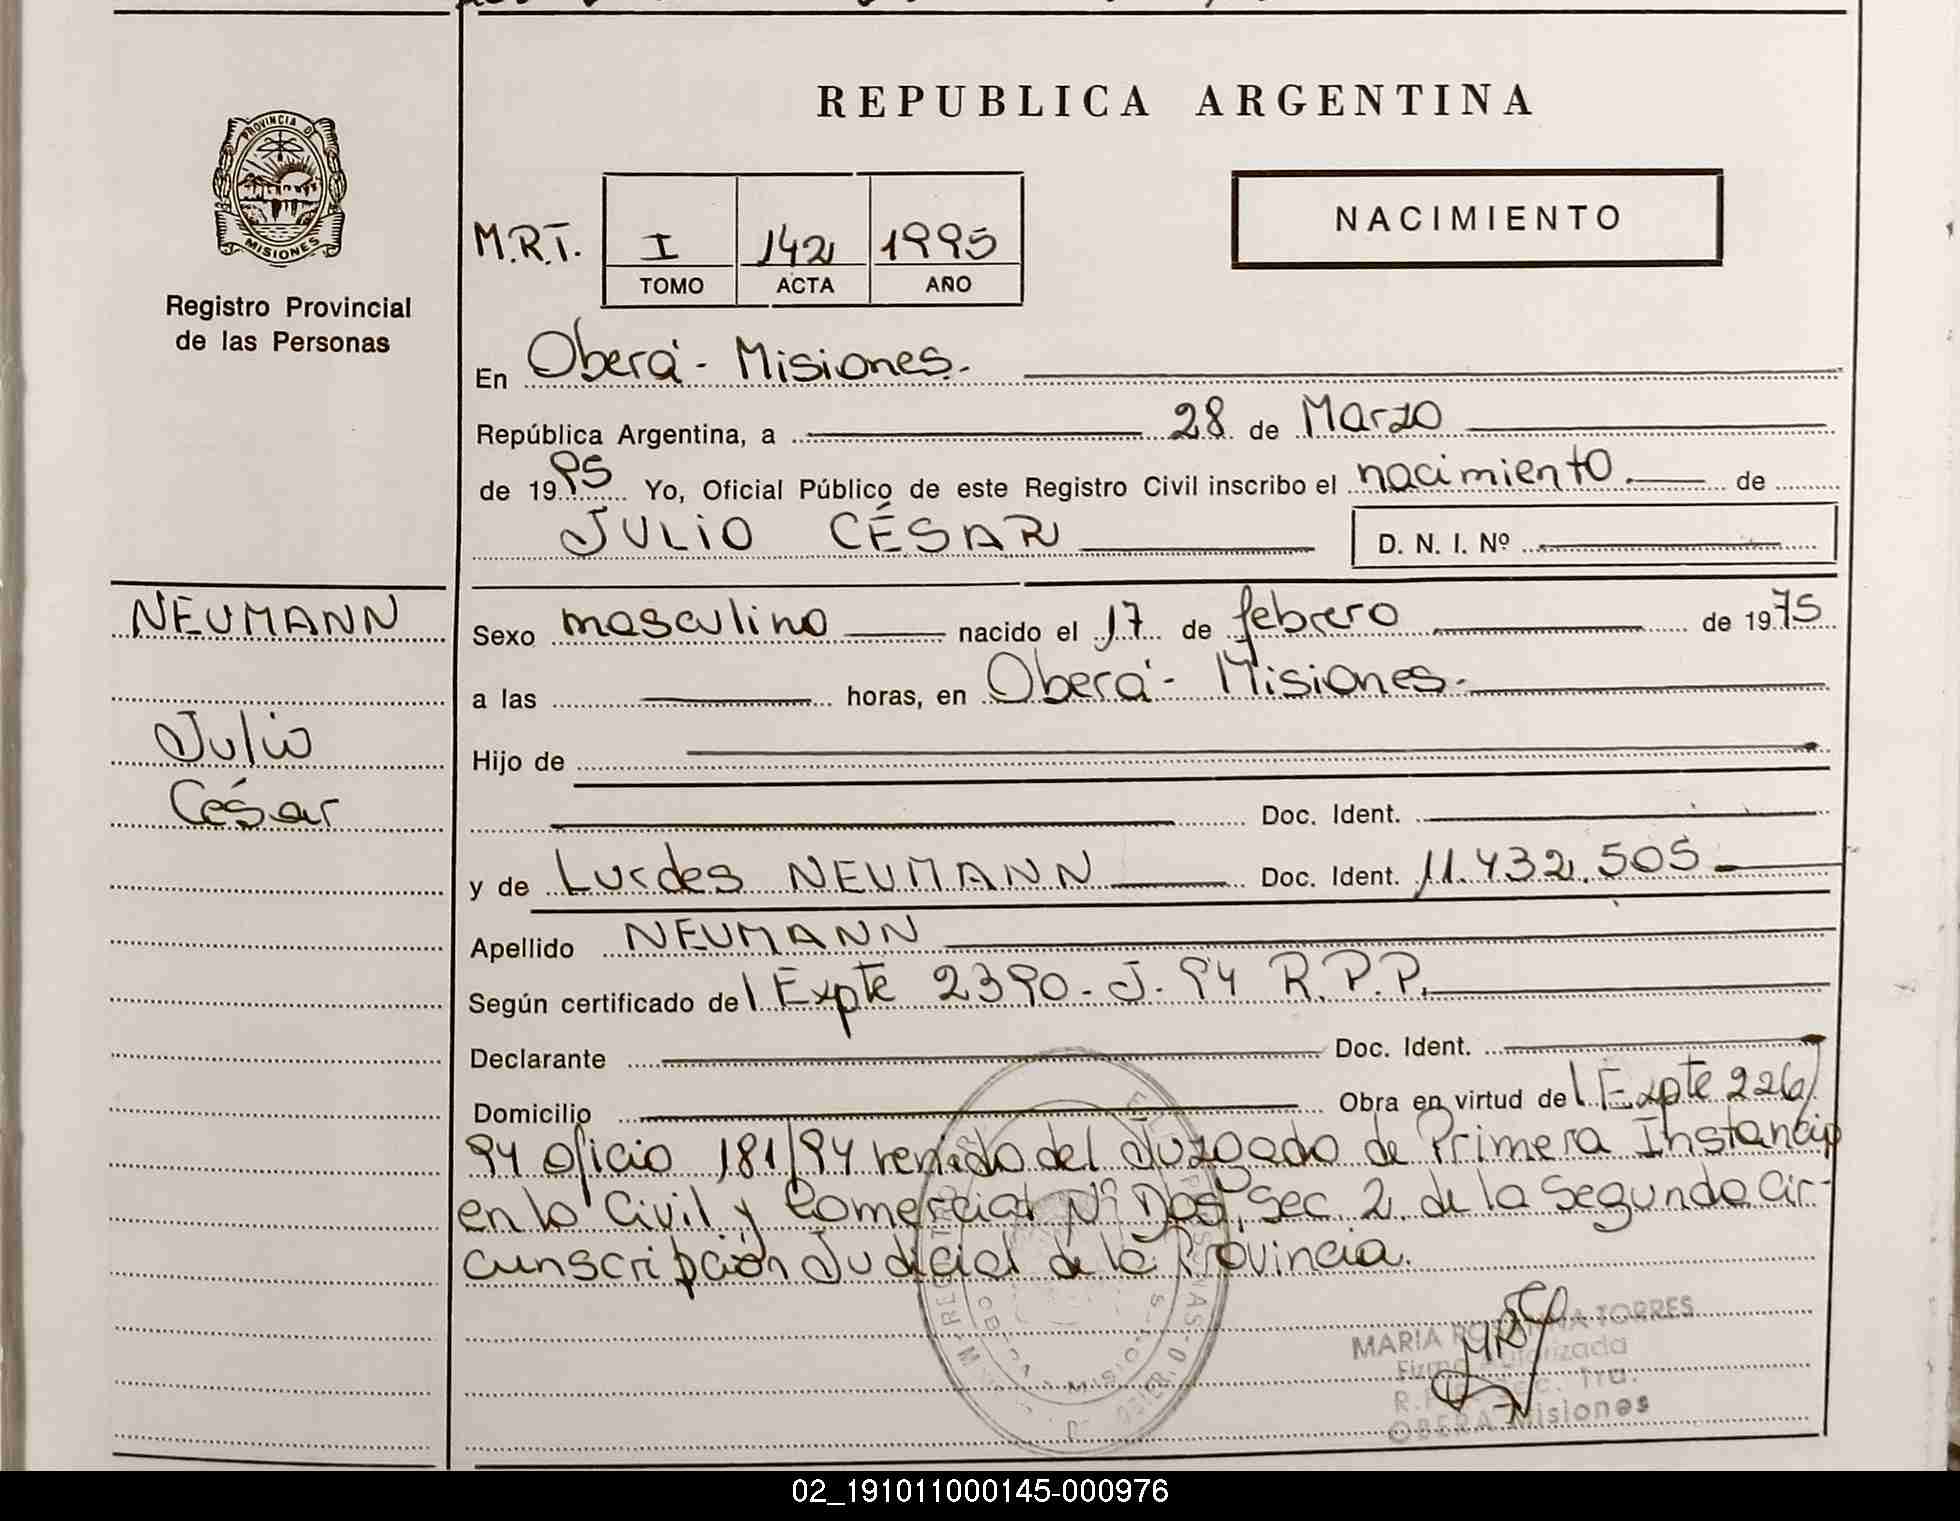 REPUBLICA ARGENTINA
PROVINCIA DE
MISIONES
Registro Provincial
de las Personas
NACIMIENTO
M.R.T. I 142 1995
TOMO ACTA AÑO
En Oberá - Misiones.
República Argentina, a 28 de Marzo
de 1995 Yo, Oficial Público de este Registro Civil inscribo el nacimiento de
JULIO CÉSAR D. N. I. Nº
NEUMANN
Julio
César
Sexo masculino nacido el 17 de febrero de 1975
a las horas, en Oberá - Misiones.
Hijo de
Doc. Ident.
y de Lurdes NEUMANN Doc. Ident. 11.432.505
Apellido NEUMANN
Según certificado del Expte 2390-J-94 R.P.P.
Declarante Doc. Ident.
Domicilio Obra en virtud del Expte 226/
94 oficio 181/94 venido del Juzgado de Primera Instancia
en lo Civil y Comercial Nº Dos, Sec. 2. de la Segunda Cir-
cunscripción Judicial de la Provincia.
MARIA TORRES
Firma Autorizada
OBERA Misiones
02_191011000145-000976